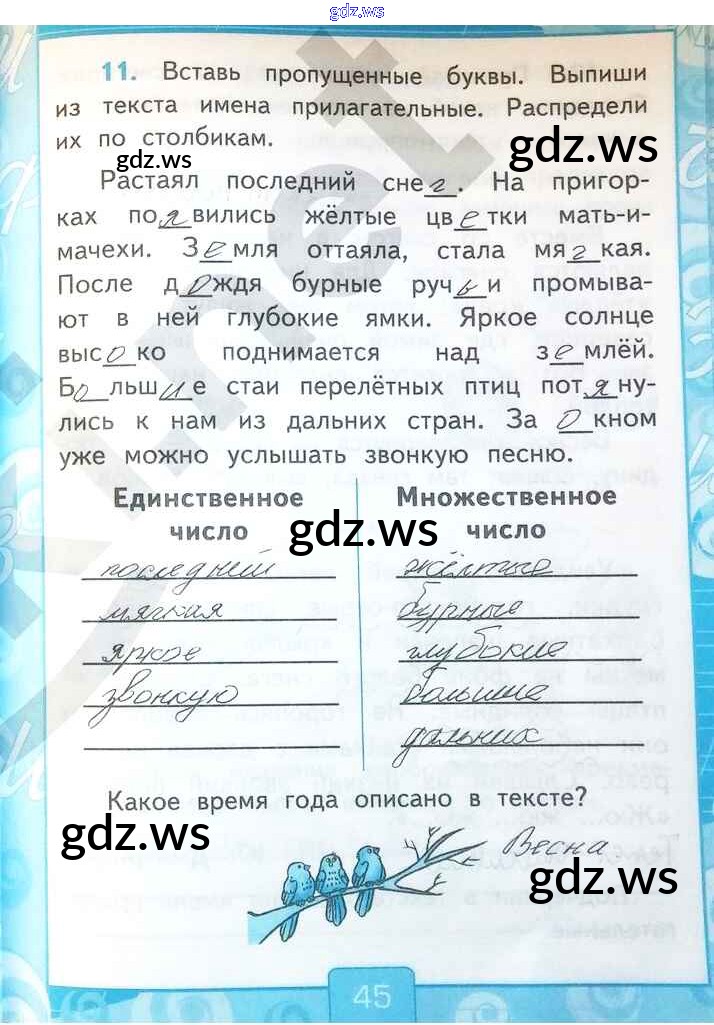 gdz.ws
11. Вставь пропущенные буквы. Выпиши
из текста имена прилагательные. Распредели
их по столбикам.
gdz.ws
gdz.ws
Растаял последний снег. На пригор-
ках появились жёлтые цветки мать-и-
мачехи. Земля оттаяла, стала мягкая.
После дождя бурные ручьи промыва-
ют в ней глубокие ямки. Яркое солнце
высоко поднимается над землёй.
Большие стаи перелётных птиц потяну-
лись к нам из дальних стран. За окном
уже можно услышать звонкую песню.
Единственное число
Множественное число
gdz.ws
последней
мягкая
яркое
звонкую
жёлтые
бурные
глубокие
большие
дальних
Какое время года описано в тексте?
gdz.ws
Весна
gdz.ws
45